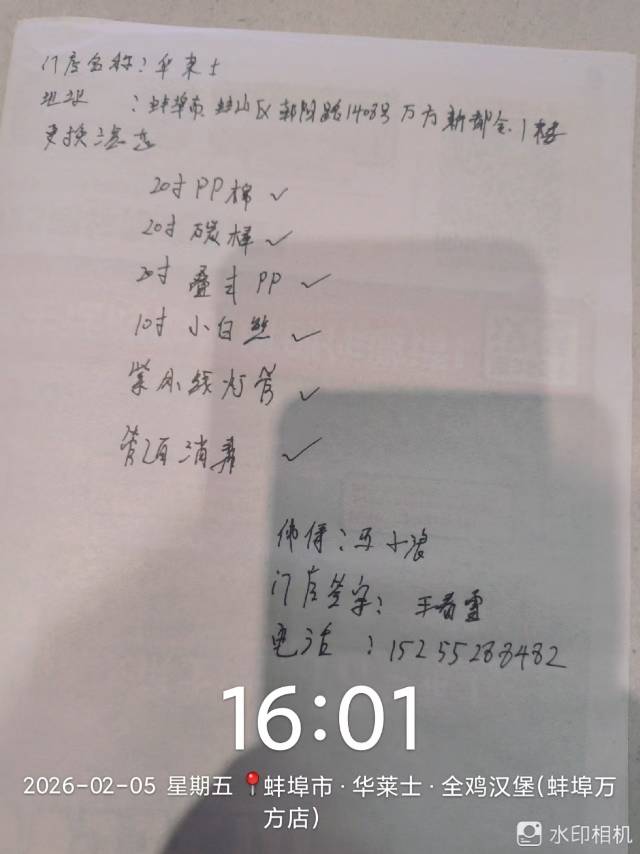 门店名称：华来士
地址：蚌埠市 蚌山区 朝阳路1408号 万方新都会1楼
更换滤芯
20寸PP棉 ✓
20寸 碳棒 ✓
20寸 叠式PP ✓
10寸 小白丝 ✓
紫外线灯管 ✓
管道消毒 ✓
维保：王小浪
门店签字：王春雪
电话：15255288482
16:01
2026-02-05 星期五 蚌埠市·华莱士·全鸡汉堡(蚌埠万
方店)
水印相机